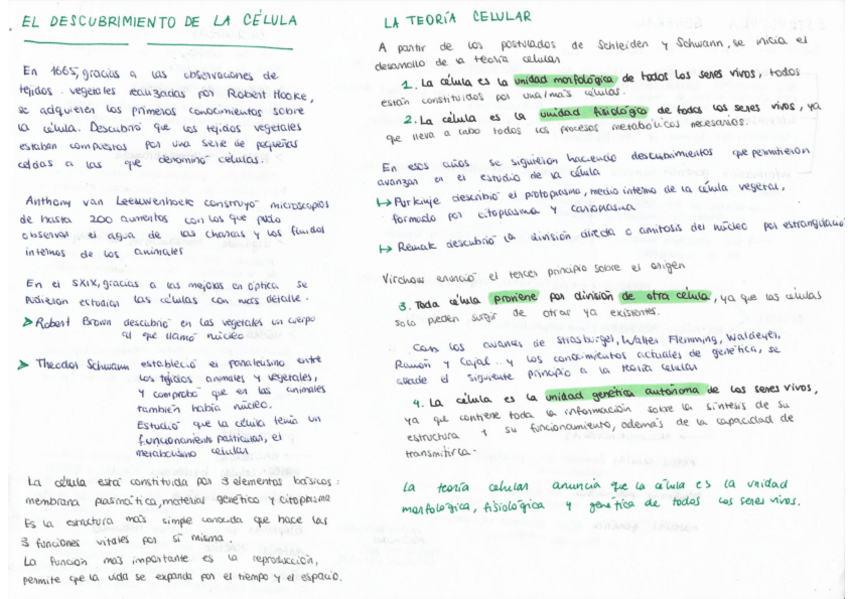 EL DESCUBRIMIENTO DE LA CÉLULA
En 1665, gracias a las observaciones de
tejidos vegetales realizadas por Robert Hooke,
se adquieren los primeros conocimientos sobre
la célula. Descubrió que los tejidos vegetales
estaban compuestos por una serie de pequeñas
celdas a las que denominó células.
Anthony van Leeuwenhoek construyó microscopios
de hasta 200 aumentos con los que pudo
observar el agua de las charcas y los fluidos
internos de los animales
En el SXIX, gracias a las mejoras en óptica se
pudieron estudiar las células con más detalle.
➤ Robert Brown descubrió en los vegetales un cuerpo
al que llamó núcleo
➤ Theodor Schwann estableció el paralelismo entre
los tejidos animales y vegetales,
y comprobó que en los animales
también había núcleo.
Estudió que la célula tenía un
funcionamiento particular, el
metabolismo celular
La célula está constituida por 3 elementos básicos:
membrana plasmática, material genético y citoplasma
Es la estructura más simple conocida que hace las
3 funciones vitales por sí misma.
La función más importante es la reproducción,
permite que la vida se expanda por el tiempo y el espacio.
LA TEORÍA CELULAR
A partir de los postulados de Schleiden y Schwann, se inicia el
desarrollo de la teoría celular
1. La célula es la unidad morfológica de todos los seres vivos, todos
están constituidos por una/más células.
2. La célula es la unidad fisiológica de todos los seres vivos, ya
que lleva a cabo todos los procesos metabólicos necesarios.
En esos años se siguieron haciendo descubrimientos que permitieron
avanzar en el estudio de la célula
↳ Purkinje describió el protoplasma, medio interno de la célula vegetal,
formado por citoplasma y carioplasma
↳ Remak descubrió la división directa o amitosis del núcleo por estrangulació
Virchow enunció el tercer principio sobre el origen
3. Toda célula proviene por división de otra célula, ya que las células
solo pueden surgir de otras ya existentes.
Con los avances de Strasburger, Walter Flemming, Waldeyer,
Ramón y Cajal.. y los conocimientos actuales de genética, se
añade el siguiente principio a la teoría celular
4. La célula es la unidad genética autónoma de los seres vivos,
ya que contiene toda la información sobre la síntesis de su
estructura y su funcionamiento, además de la capacidad de
transmitirla.
La teoría celular anuncia que la célula es la unidad
morfológica, fisiológica y genética de todos los seres vivos.